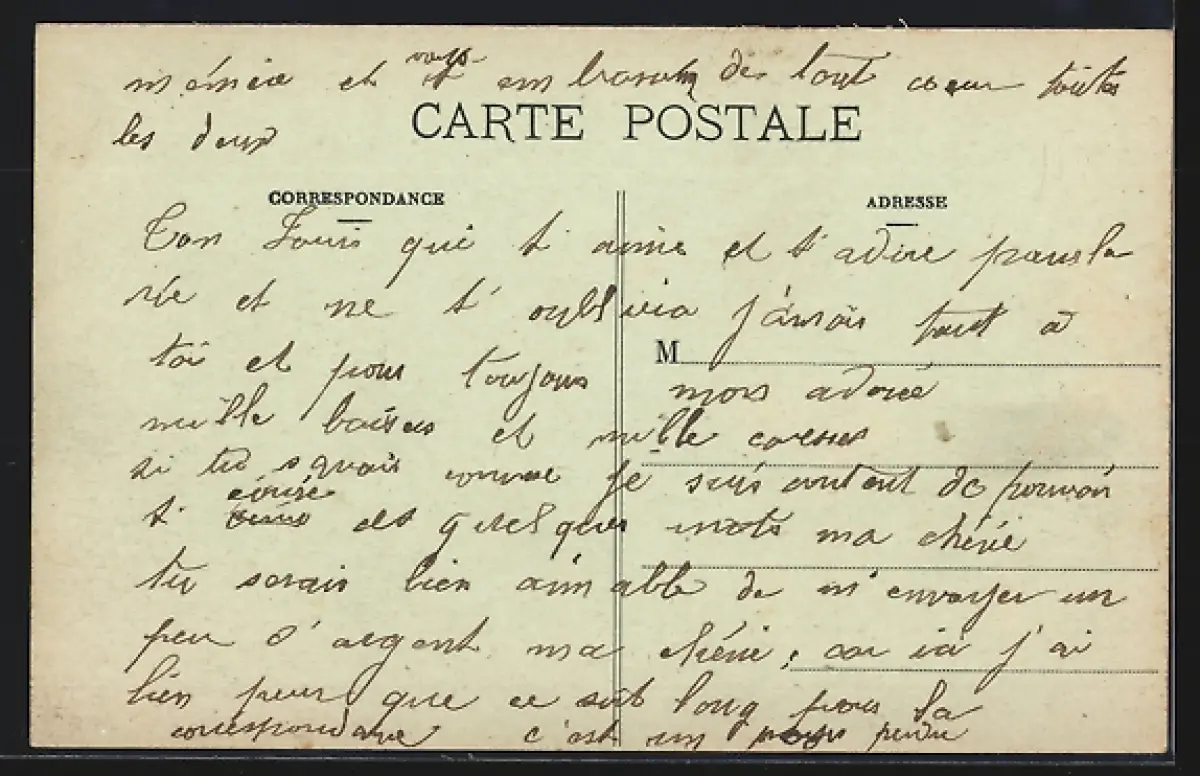 mémée et vous embrassent de tout coeur toutes
les deux
CARTE POSTALE
CORRESPONDANCE
ADRESSE
Ton Louis qui t'aime et t'adore pour la
vie et ne t'oubliera jamais tout a
M
toi et pour toujours mon adoré
mille baisers et mille caresses
si tu savais comme je suis content de pouvoir
t'écrire ces quelques mots ma chérie
tu serais bien aimable de m'envoyer un
peu d'argent ma chérie, car ici j'ai
bien peur que ce soit long pour la
correspondance c'est un perdu